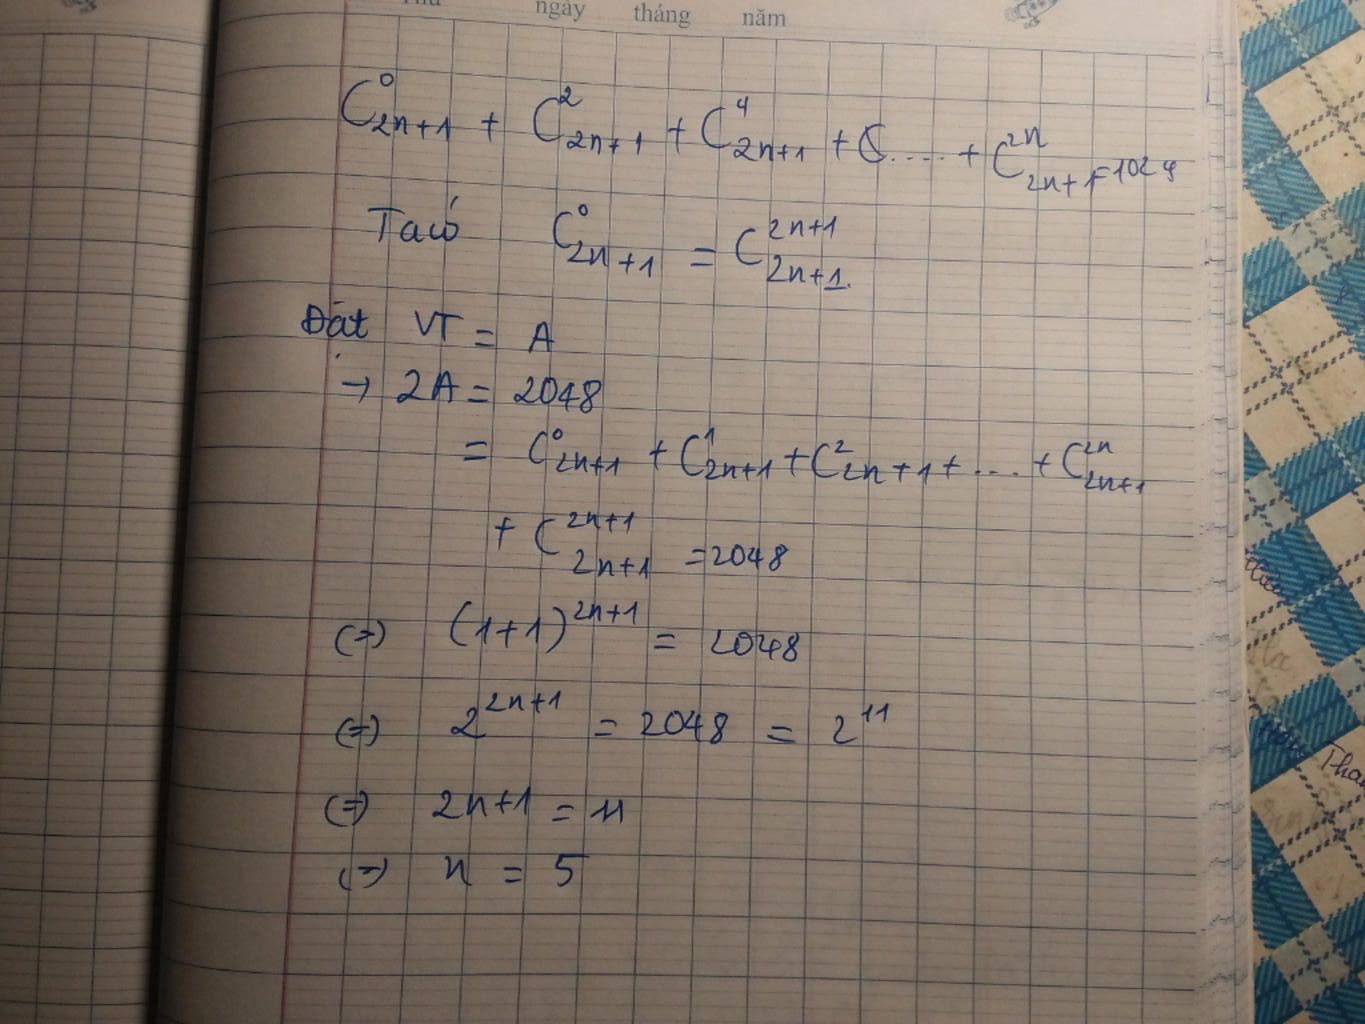 ngày tháng năm
C⁰₂ₙ₊₁ + C²₂ₙ₊₁ + C⁴₂ₙ₊₁ + C.... + C²ⁿ₂ₙ₊₁ = 1024
Ta có C⁰₂ₙ₊₁ = C²ⁿ⁺¹₂ₙ₊₁.
Đặt VT = A
→ 2A = 2048
= C⁰₂ₙ₊₁ + C¹₂ₙ₊₁ + C²₂ₙ₊₁ + ... + C²ⁿ₂ₙ₊₁
+ C²ⁿ⁺¹₂ₙ₊₁ = 2048
(=) (1+1)²ⁿ⁺¹ = 2048
(=) 2²ⁿ⁺¹ = 2048 = 2¹¹
(=) 2n+1 = 11
(=) n = 5